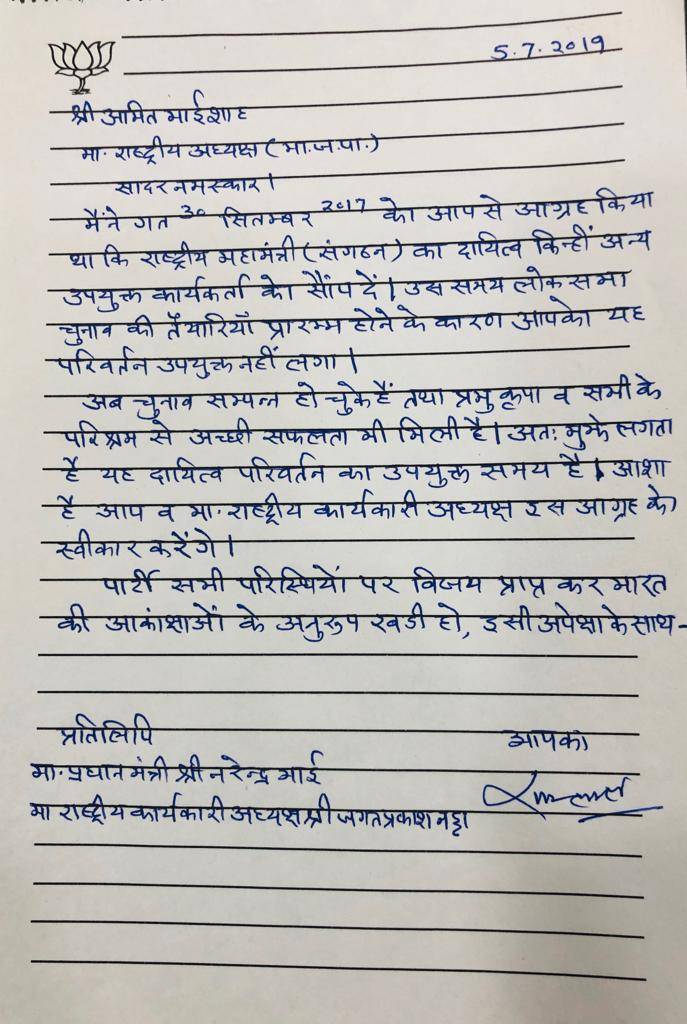 5.7.2019
श्री अमित भाई शाह
मा. राष्ट्रीय अध्यक्ष (भा.ज.पा.)
सादर नमस्कार।
मैंने गत 30 सितम्बर 2017 को आप से आग्रह किया
था कि राष्ट्रीय महामंत्री (संगठन) का दायित्व किन्हीं अन्य
उपयुक्त कार्यकर्ता को सौंप दें। उस समय लोक सभा
चुनाव की तैयारियाँ प्रारम्भ होने के कारण आपको यह
परिवर्तन उपयुक्त नहीं लगा।
अब चुनाव सम्पन्न हो चुके हैं तथा प्रभु कृपा व सभी के
परिश्रम से अच्छी सफलता भी मिली है। अतः मुझे लगता
है यह दायित्व परिवर्तन का उपयुक्त समय है। आशा
है आप व मा. राष्ट्रीय कार्यकारी अध्यक्ष इस आग्रह को
स्वीकार करेंगे।
पार्टी सभी परिस्थियों पर विजय प्राप्त कर भारत
की आकांक्षाओं के अनुरुप खडी हो, इसी अपेक्षा के साथ-
प्रतिलिपि
आपका
मा. प्रधान मंत्री श्री नरेन्द्र भाई
मा राष्ट्रीय कार्यकारी अध्यक्ष श्री जगत प्रकाश नड्डा